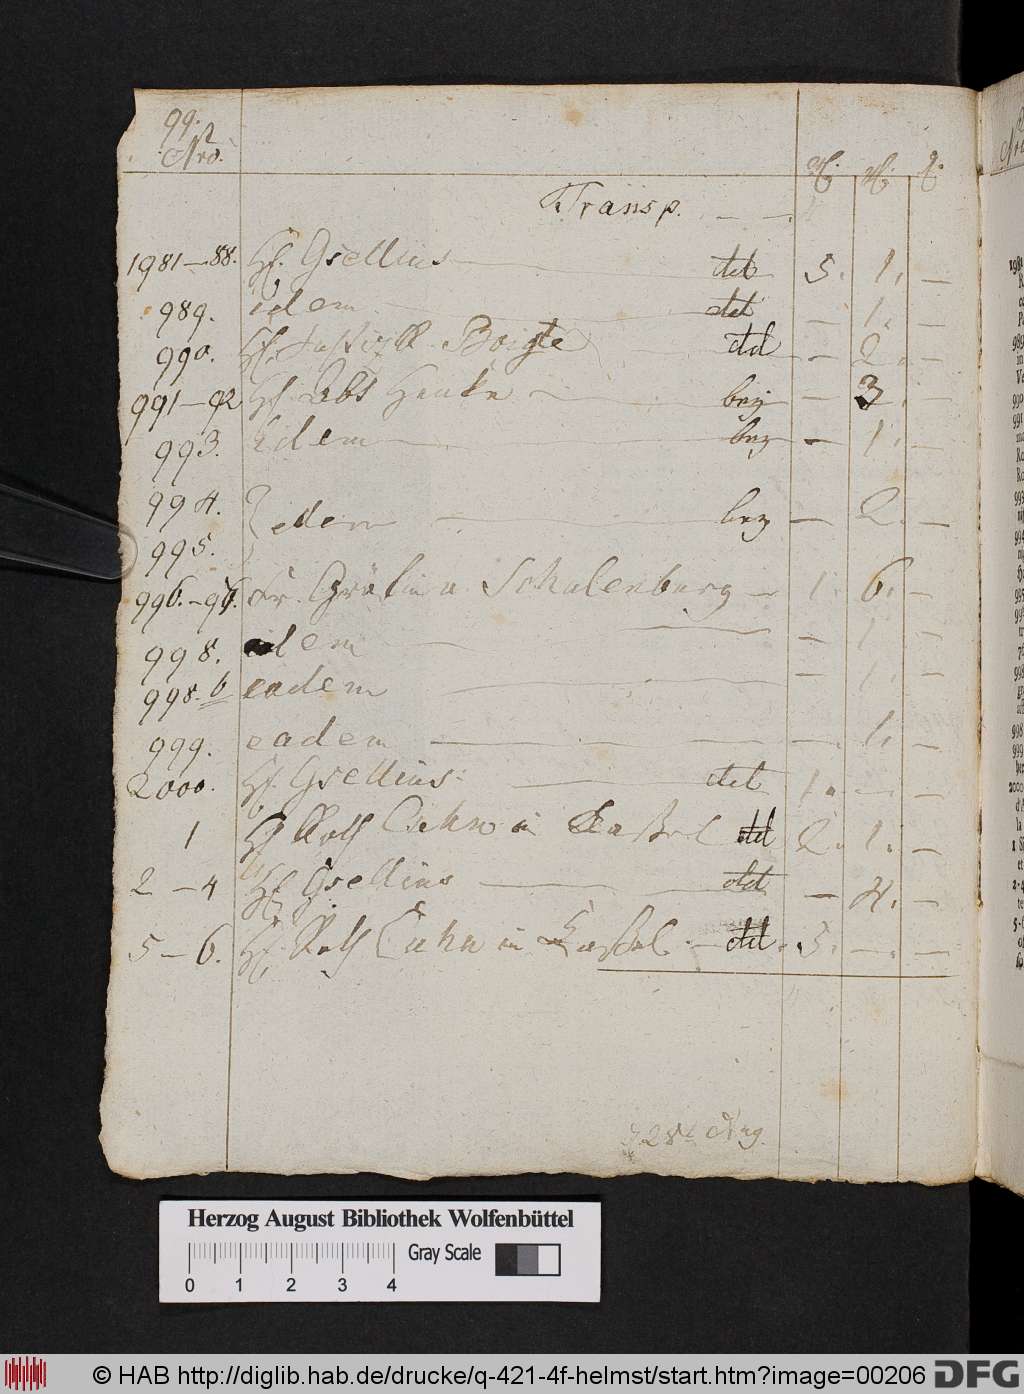 99.
Nro.
Transp. — —
1981—88. H. Gsellius — dd 5. 1. —
989. idem — dd — 1. —
990. H. Boigte dd — 2. —
991—92 H. Abt Henke — bez — 3. —
993. Idem — bez — 1. —
994. idem — bez — 2. —
995.
996.—97. Fr. Gräfin v. Schulenburg — 1. 6. —
998. idem — — 1. —
998.b eadem — — 1. —
999. eadem — — 1. —
2000. H. Gsellius — dd 1. — —
1 H Roth Cahn in Cassel dd 2. 1. —
2—4 H. Gsellius — dd — 4. —
5—6. H. Roth Cahn in Cassel — dd. 3. — —
28t Aug.
Herzog August Bibliothek Wolfenbüttel
Gray Scale
0 1 2 3 4
© HAB http://diglib.hab.de/drucke/q-421-4f-helmst/start.htm?image=00206 DFG